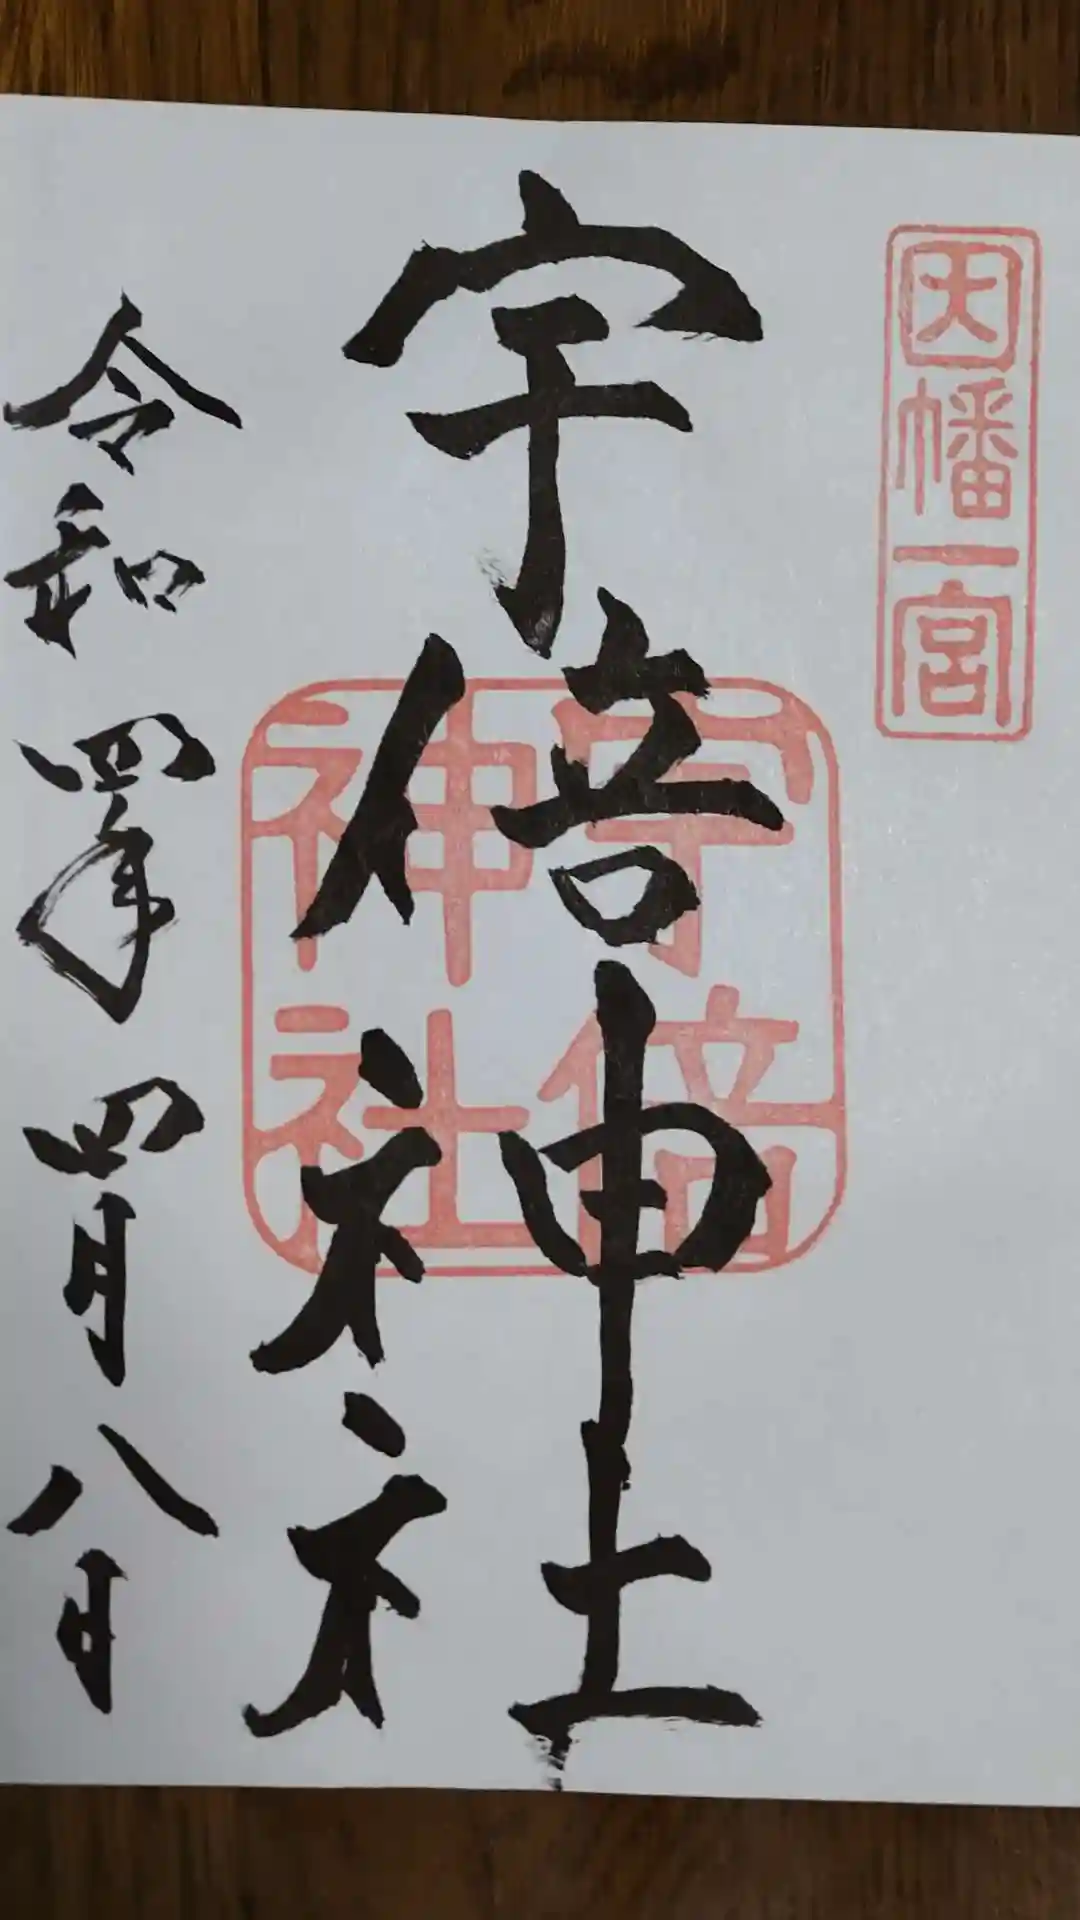 因幡一宮
宇倍神社
宇倍
神社
令和四年四月八日